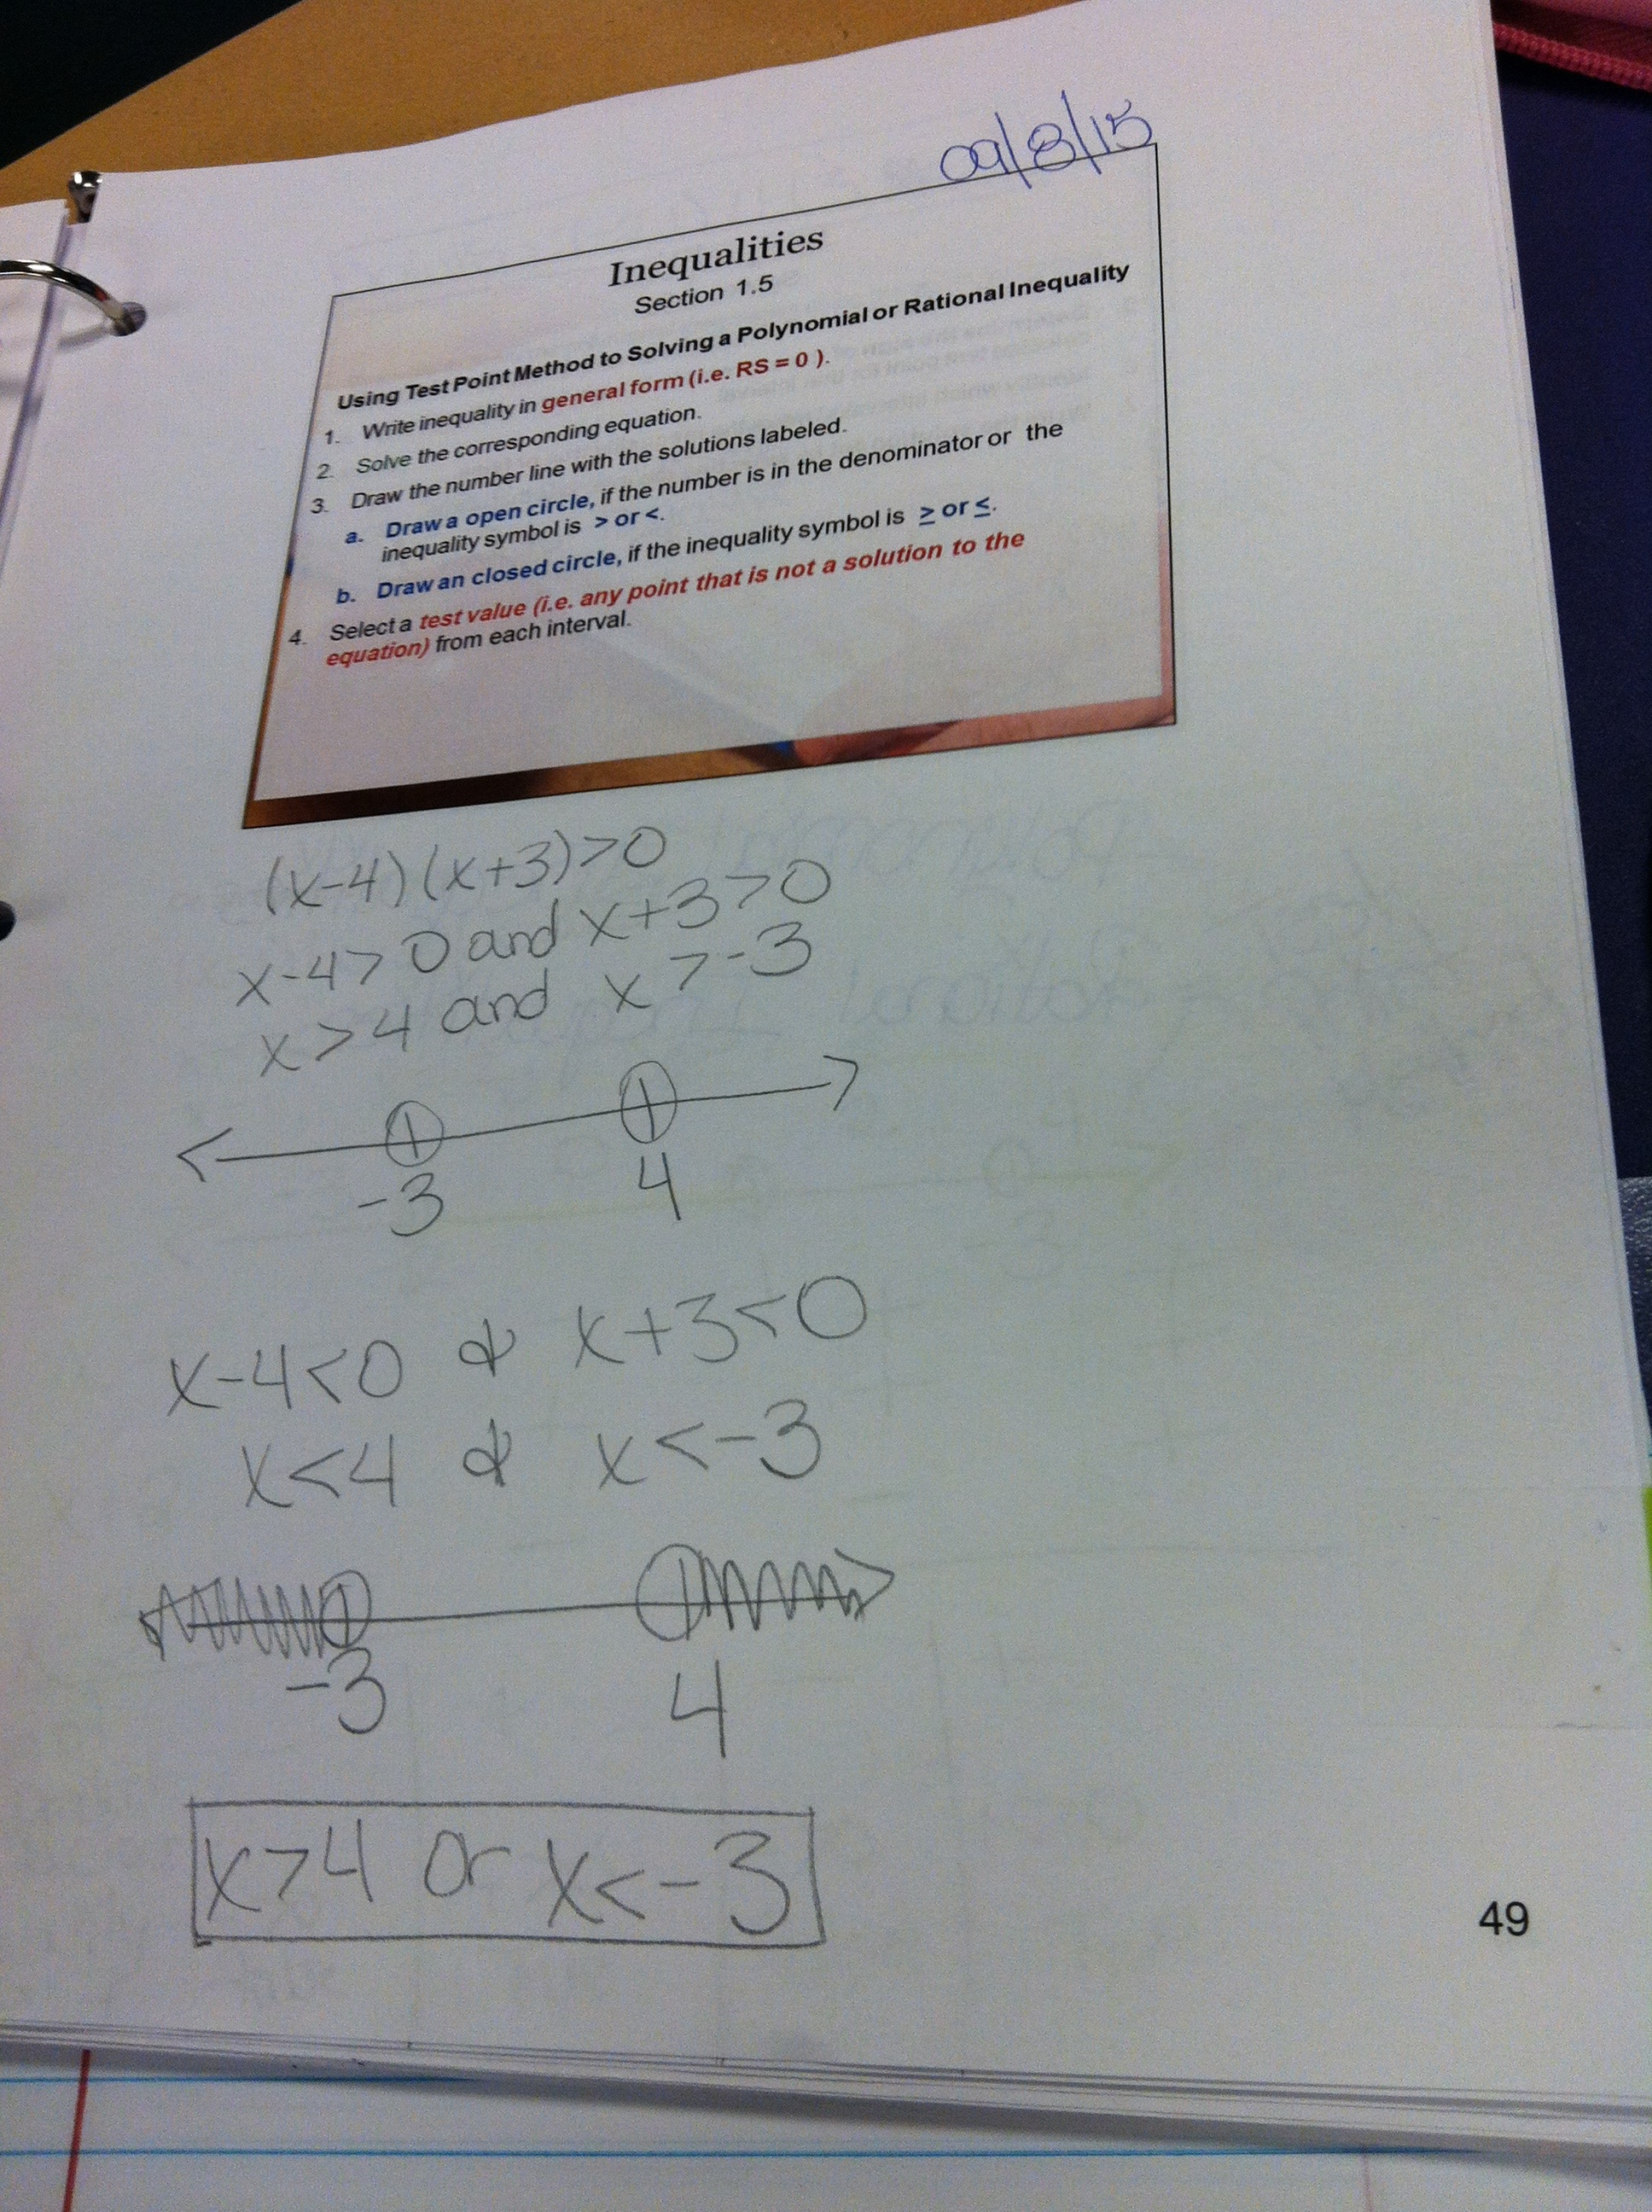 09/8/15
Inequalities
Section 1.5
Using Test Point Method to Solving a Polynomial or Rational Inequality
1. Write inequality in general form (i.e. RS = 0 ).
2. Solve the corresponding equation.
3. Draw the number line with the solutions labeled.
a. Draw a open circle, if the number is in the denominator or the
inequality symbol is > or <.
b. Draw an closed circle, if the inequality symbol is ≥ or ≤.
4. Select a test value (i.e. any point that is not a solution to the
equation) from each interval.
(x-4)(x+3)>0
x-4>0 and x+3>0
x>4 and x>-3
-3 4
x-4<0 & x+3<0
x<4 & x<-3
-3 4
x>4 or x<-3
49